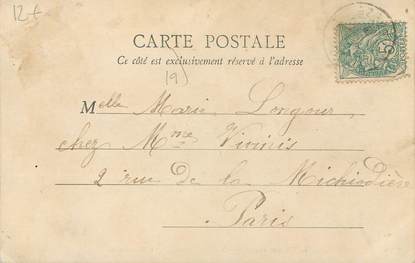 12f
CARTE POSTALE
Ce côté est exclusivement réservé à l'adresse
19
Melle Marie Longour
chez Mme Vivinis
2 rue de la Michiodière
Paris